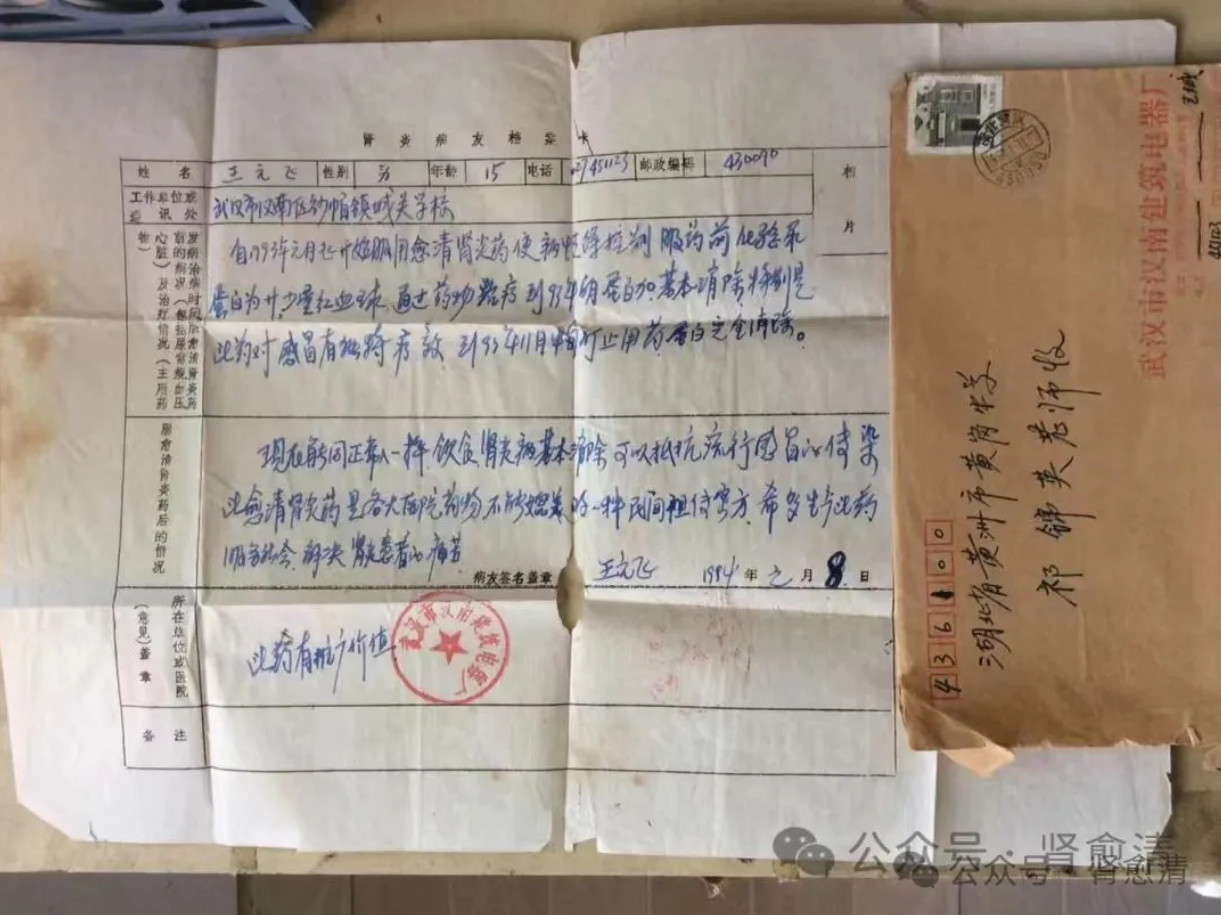 肾炎病友档案卡
姓名 王元飞 性别 年龄 15 电话 451123 邮政编码 430090
相片
工作单位或通讯处 武汉市汉南区纱帽镇城关学校
发病治病时间服愈清肾炎药前的病况（包括尿常规血压心脏）及治疗情况（主用药物）
自1993年元月起开始服用愈清肾炎药使病 控制 服药前化验尿
蛋白为 少量红血球 通过药物治疗到93年 月蛋白 基本消除特别是
此药对感冒有独特疗效 到93年11月 停止用药蛋白完全消除。
服愈清肾炎药后的情况
现在能同正常人一样饮食肾炎病基本消除可以抵抗流行感冒的传染
此愈清肾炎药是各大医院药物不能 的一种民间祖传密方 希多生产此药
服务社会 解决肾炎患者的痛苦
病友签名盖章 王元飞 1994年元月8日
所在单位或医院（意见）盖章
此药有推广价值
武汉市汉南建筑电器厂
备注
武汉市汉南建筑电器厂
436100
湖北省黄州市黄冈中学
祁锦英老师收
公众号·肾愈清
公众号·肾愈清